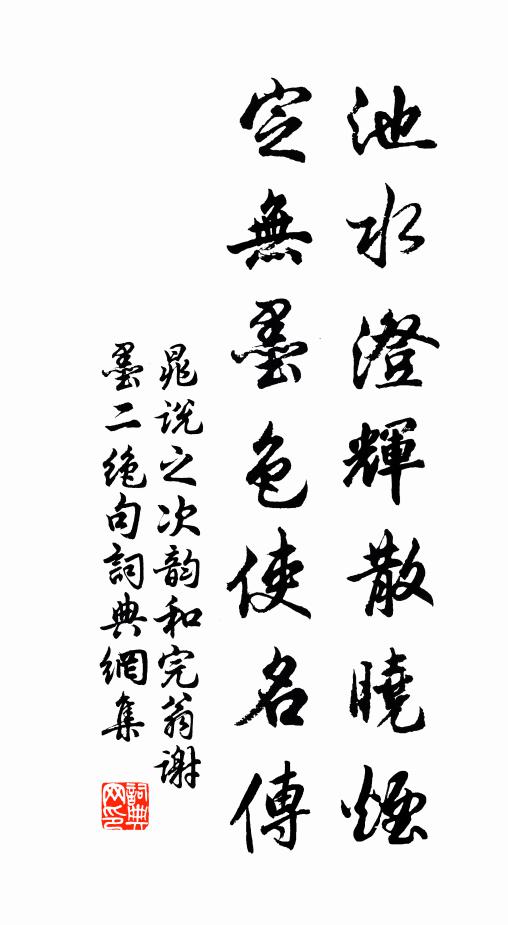 池水澄輝散曉煙
定無墨色使名傳
晁說之次韵和完翁謝
墨二絶句詞典網集
詞典网印